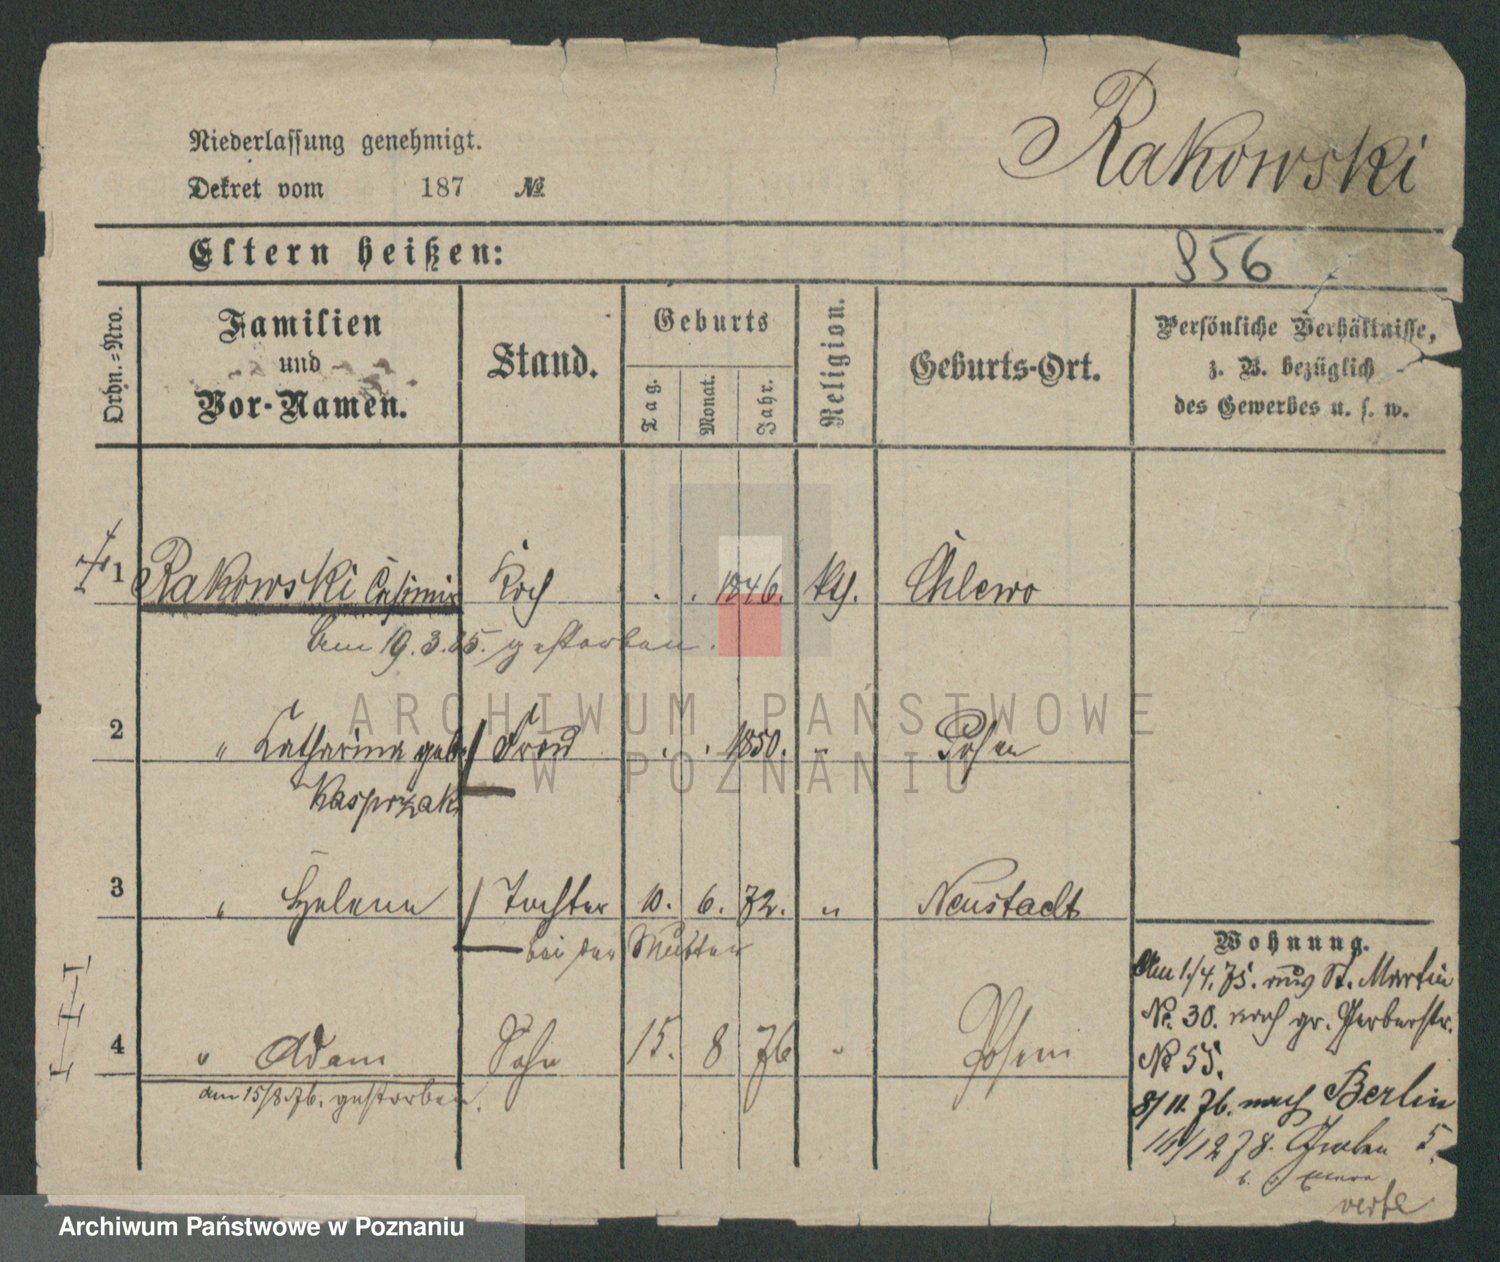 Rakowski
Niederlassung genehmigt.
Dekret vom 187 №
Eltern heißen:
956
Ordn.=Nro.
Familien
und
Vor-Namen.
Stand.
Geburts
Tag.
Monat.
Jahr.
Religion.
Geburts-Ort.
Persönliche Verhältnisse,
z. B. bezüglich
des Gewerbes u. s. w.
1 Rakowski Casimir Koch . . 1846. kth. Chlewo
am 19.3.85. gestorben.
2 " Catharina geb. Frau . . 1850. " Posen
Kasprzak
3 " Helena Tochter 10. 6. 72. " Neustadt
bei der Mutter
4 " Adam Sohn 15. 8 76 " Posen
am 15/8.76. gestorben.
Wohnung.
Am 1./4.75. aus St. Martin
No. 30. nach gr. Gerberstr.
No 55.
8/11.76. nach Berlin
14/12 78. Graben 5.
verte
ARCHIWUM PAŃSTWOWE
W POZNANIU
Archiwum Państwowe w Poznaniu